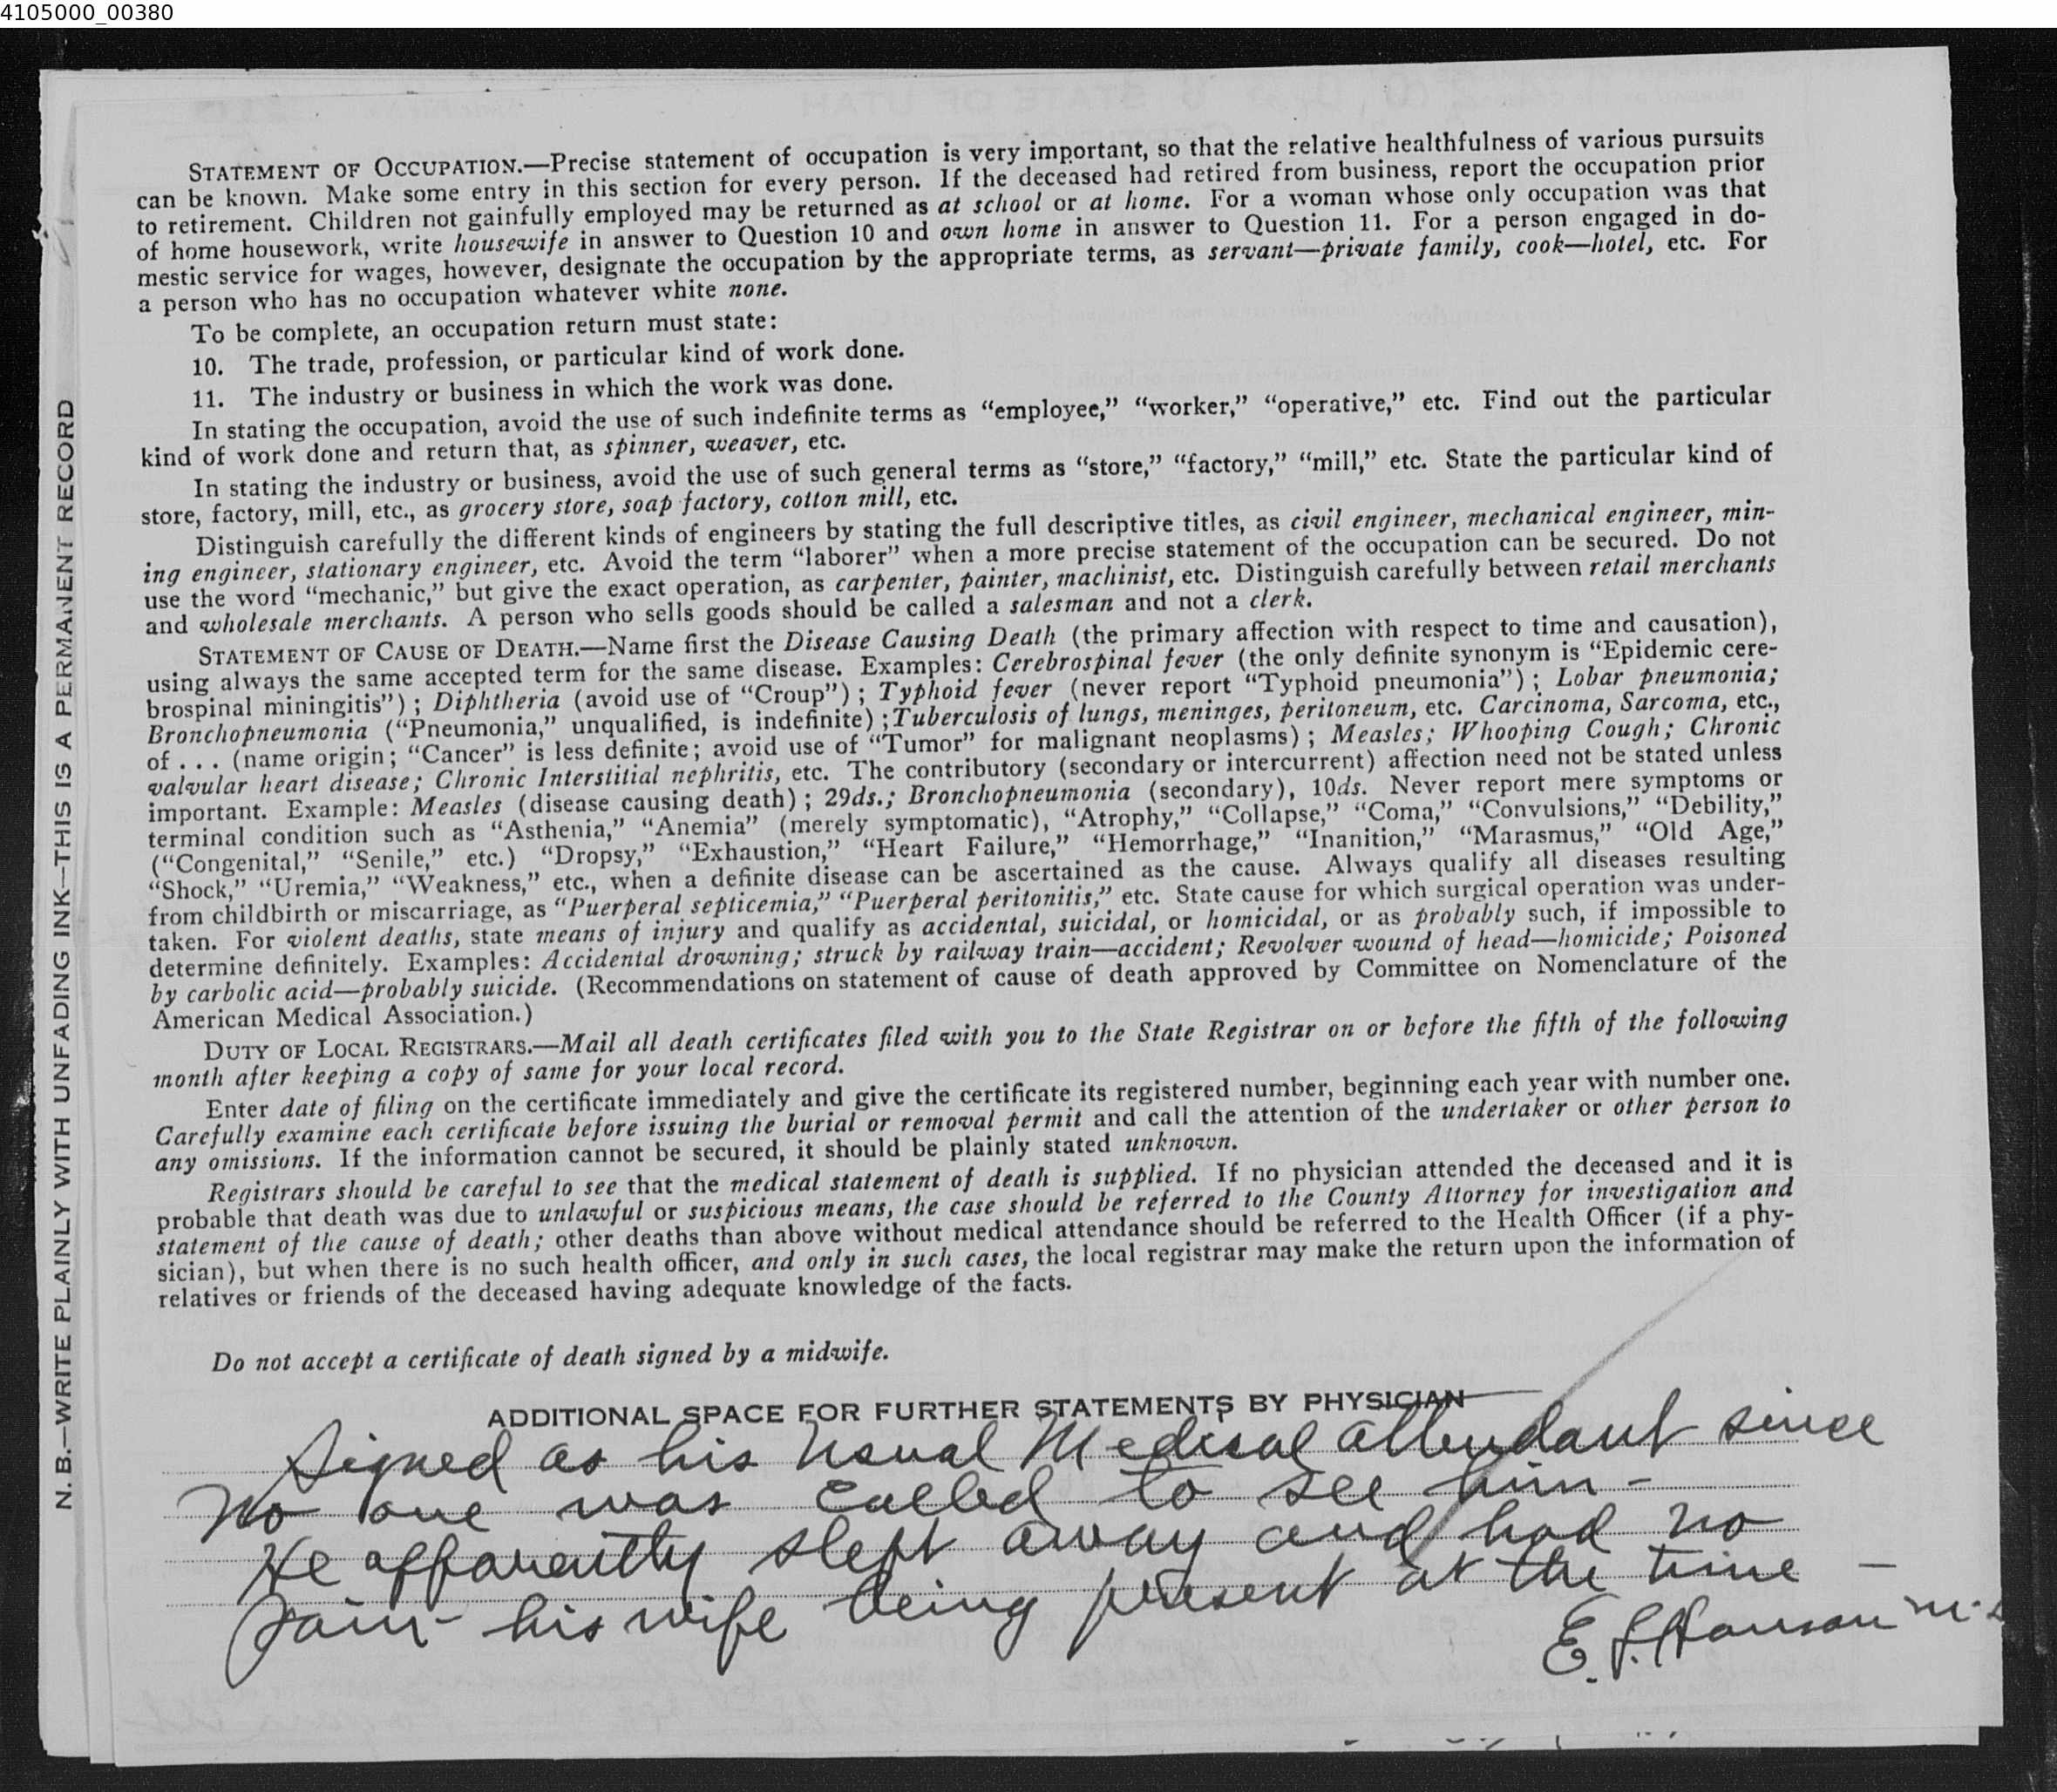 4105000_00380
N. B.—WRITE PLAINLY WITH UNFADING INK—THIS IS A PERMANENT RECORD
STATEMENT OF OCCUPATION.—Precise statement of occupation is very important, so that the relative healthfulness of various pursuits
can be known. Make some entry in this section for every person. If the deceased had retired from business, report the occupation prior
to retirement. Children not gainfully employed may be returned as at school or at home. For a woman whose only occupation was that
of home housework, write housewife in answer to Question 10 and own home in answer to Question 11. For a person engaged in do-
mestic service for wages, however, designate the occupation by the appropriate terms, as servant—private family, cook—hotel, etc. For
a person who has no occupation whatever white none.
To be complete, an occupation return must state:
10. The trade, profession, or particular kind of work done.
11. The industry or business in which the work was done.
In stating the occupation, avoid the use of such indefinite terms as “employee,” “worker,” “operative,” etc. Find out the particular
kind of work done and return that, as spinner, weaver, etc.
In stating the industry or business, avoid the use of such general terms as “store,” “factory,” “mill,” etc. State the particular kind of
store, factory, mill, etc., as grocery store, soap factory, cotton mill, etc.
Distinguish carefully the different kinds of engineers by stating the full descriptive titles, as civil engineer, mechanical engineer, min-
ing engineer, stationary engineer, etc. Avoid the term “laborer” when a more precise statement of the occupation can be secured. Do not
use the word “mechanic,” but give the exact operation, as carpenter, painter, machinist, etc. Distinguish carefully between retail merchants
and wholesale merchants. A person who sells goods should be called a salesman and not a clerk.
STATEMENT OF CAUSE OF DEATH.—Name first the Disease Causing Death (the primary affection with respect to time and causation),
using always the same accepted term for the same disease. Examples: Cerebrospinal fever (the only definite synonym is “Epidemic cere-
brospinal miningitis”) ; Diphtheria (avoid use of “Croup”) ; Typhoid fever (never report “Typhoid pneumonia”) ; Lobar pneumonia;
Bronchopneumonia (“Pneumonia,” unqualified, is indefinite) ;Tuberculosis of lungs, meninges, peritoneum, etc. Carcinoma, Sarcoma, etc.,
of . . . (name origin; “Cancer” is less definite; avoid use of “Tumor” for malignant neoplasms) ; Measles; Whooping Cough; Chronic
valvular heart disease; Chronic Interstitial nephritis, etc. The contributory (secondary or intercurrent) affection need not be stated unless
important. Example: Measles (disease causing death) ; 29ds.; Bronchopneumonia (secondary), 10ds. Never report mere symptoms or
terminal condition such as “Asthenia,” “Anemia” (merely symptomatic), “Atrophy,” “Collapse,” “Coma,” “Convulsions,” “Debility,”
(“Congenital,” “Senile,” etc.) “Dropsy,” “Exhaustion,” “Heart Failure,” “Hemorrhage,” “Inanition,” “Marasmus,” “Old Age,”
“Shock,” “Uremia,” “Weakness,” etc., when a definite disease can be ascertained as the cause. Always qualify all diseases resulting
from childbirth or miscarriage, as “Puerperal septicemia,” “Puerperal peritonitis,” etc. State cause for which surgical operation was under-
taken. For violent deaths, state means of injury and qualify as accidental, suicidal, or homicidal, or as probably such, if impossible to
determine definitely. Examples: Accidental drowning; struck by railway train—accident; Revolver wound of head—homicide; Poisoned
by carbolic acid—probably suicide. (Recommendations on statement of cause of death approved by Committee on Nomenclature of the
American Medical Association.)
DUTY OF LOCAL REGISTRARS.—Mail all death certificates filed with you to the State Registrar on or before the fifth of the following
month after keeping a copy of same for your local record.
Enter date of filing on the certificate immediately and give the certificate its registered number, beginning each year with number one.
Carefully examine each certificate before issuing the burial or removal permit and call the attention of the undertaker or other person to
any omissions. If the information cannot be secured, it should be plainly stated unknown.
Registrars should be careful to see that the medical statement of death is supplied. If no physician attended the deceased and it is
probable that death was due to unlawful or suspicious means, the case should be referred to the County Attorney for investigation and
statement of the cause of death; other deaths than above without medical attendance should be referred to the Health Officer (if a phy-
sician), but when there is no such health officer, and only in such cases, the local registrar may make the return upon the information of
relatives or friends of the deceased having adequate knowledge of the facts.
Do not accept a certificate of death signed by a midwife.
ADDITIONAL SPACE FOR FURTHER STATEMENTS BY PHYSICIAN
Signed as his Usual Medical attendant since
No one was called to see him -
He apparently slept away and had no
pain - his wife being present at the time -
Hanson M.D